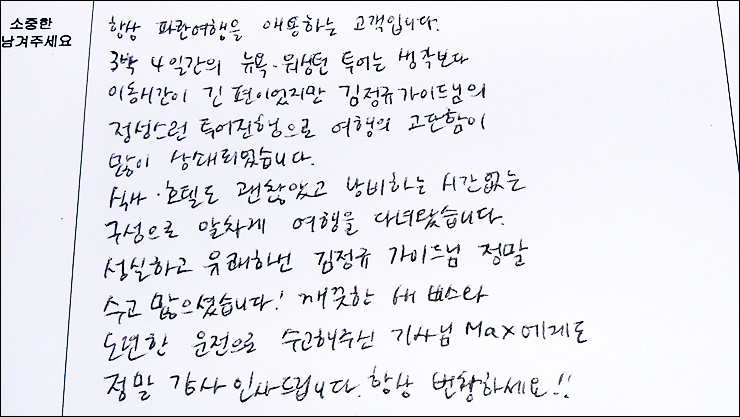 소중한
남겨주세요
항상 파란여행을 애용하는 고객입니다.
3박 4일간의 뉴욕·워싱턴 투어는 생각보다
이동시간이 긴 편이었지만 김정규가이드님의
정성스런 투어진행으로 여행의 고단함이
많이 상쇄되었습니다.
식사·호텔도 괜찮았고 낭비하는 시간없는
구성으로 알차게 여행을 다녀왔습니다.
성실하고 유쾌하신 김정규 가이드님 정말
수고 많으셨습니다! 깨끗한 새 버스와
노련한 운전으로 수고해주신 기사님 Max에게도
정말 감사 인사드립니다. 항상 번창하세요!!